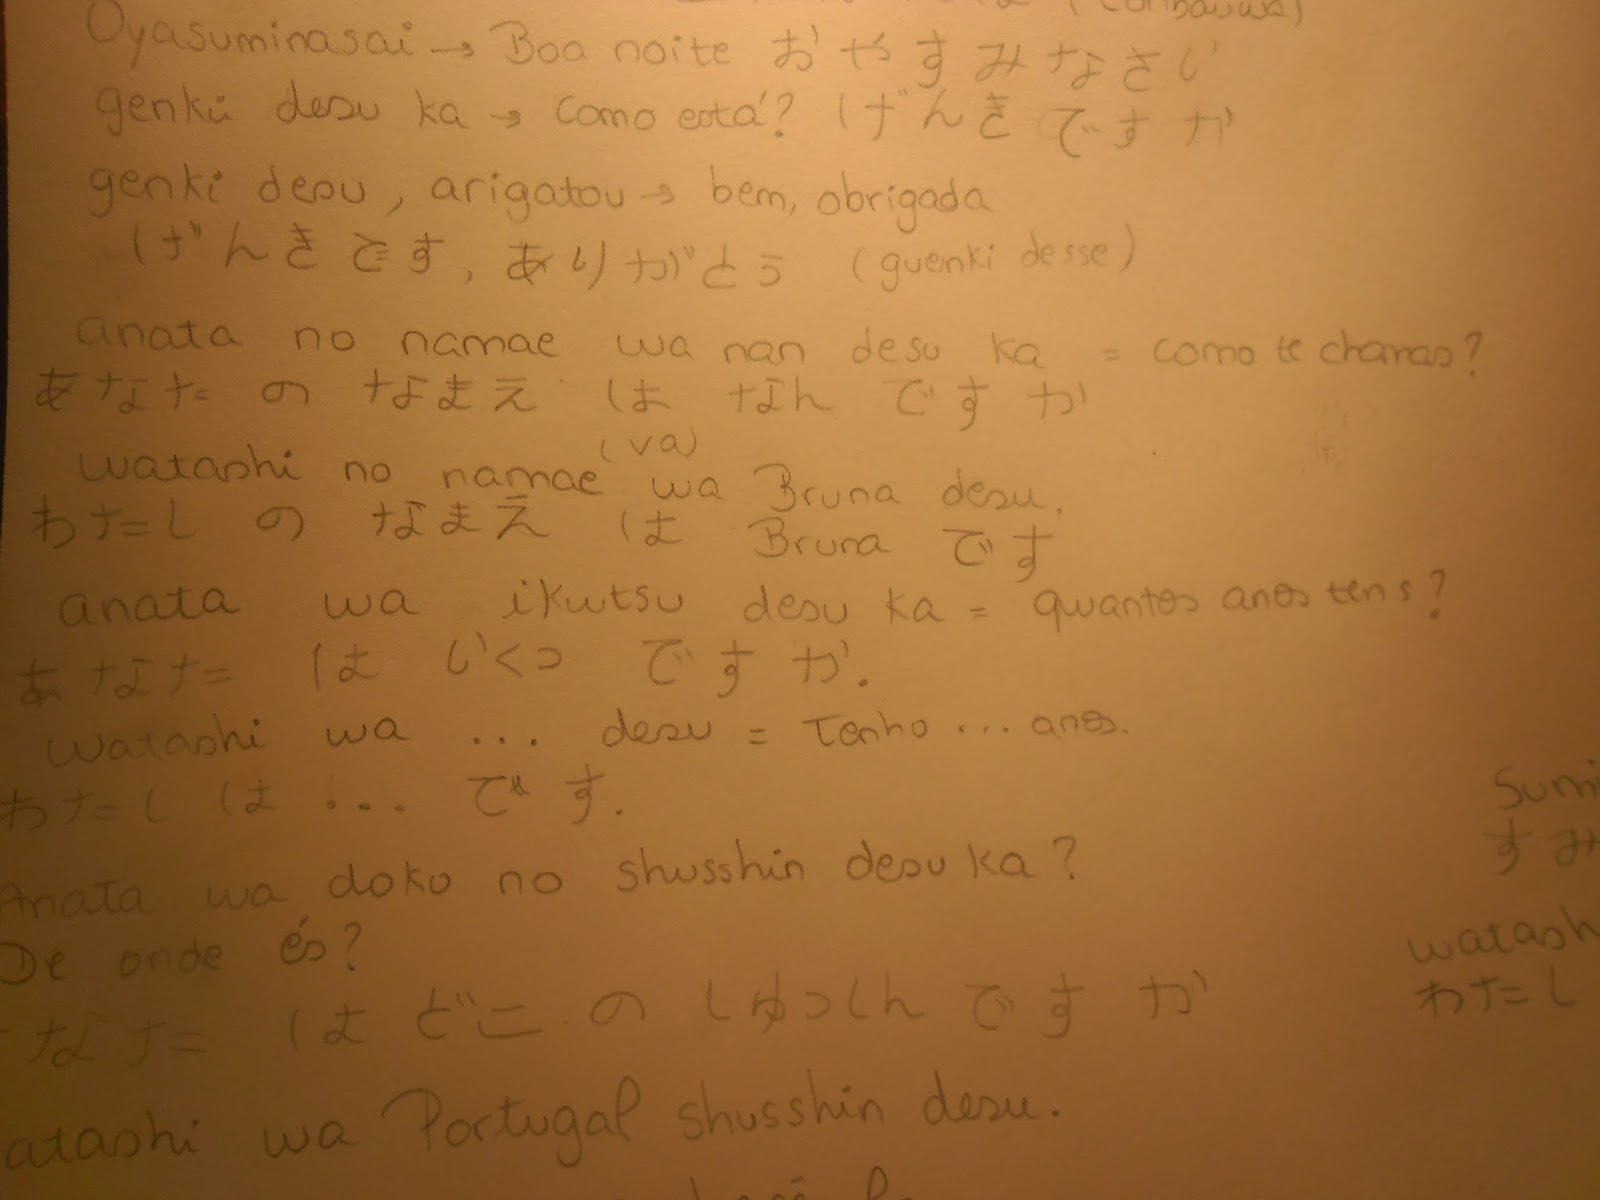 Oyasuminasai → Boa noite おやすみなさい
genki desu ka → como está? げんきですか
genki desu, arigatou → bem, obrigada
げんきです, ありがとう (guenki desse)
anata no namae wa nan desu ka = como te chamas?
あなた の なまえ は なん です か
(va)
watashi no namae wa Bruna desu.
わたし の なまえ は Bruna です
anata wa ikutsu desu ka = quantos anos tens?
あなた は いくつ です か.
watashi wa ... desu = Tenho ... anos.
わたし は ... です.
Sumi
すみ
Anata wa doko no shusshin desu ka?
De onde és?
なた は どこ の しゅっしん です か
watash
わたし
atashi wa Portugal shusshin desu.